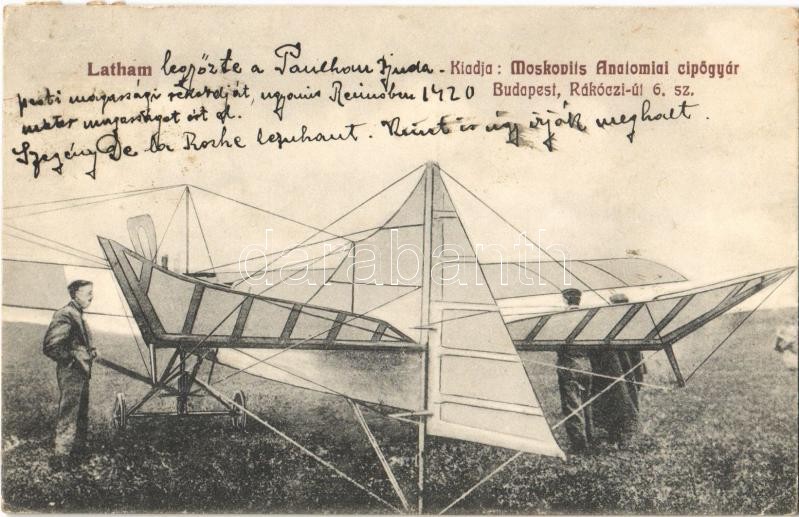 Latham legyőzte a Paulhan Buda-
pesti magassági rekordját, ugyanis Reimsben 1420
méter magasságot ért el.
Szegény De la Roche lezuhant. Kint is úgy írják meghalt.
Kiadja: Moskovits Anatomiai cipőgyár
Budapest, Rákóczi-út 6. sz.
darabanth